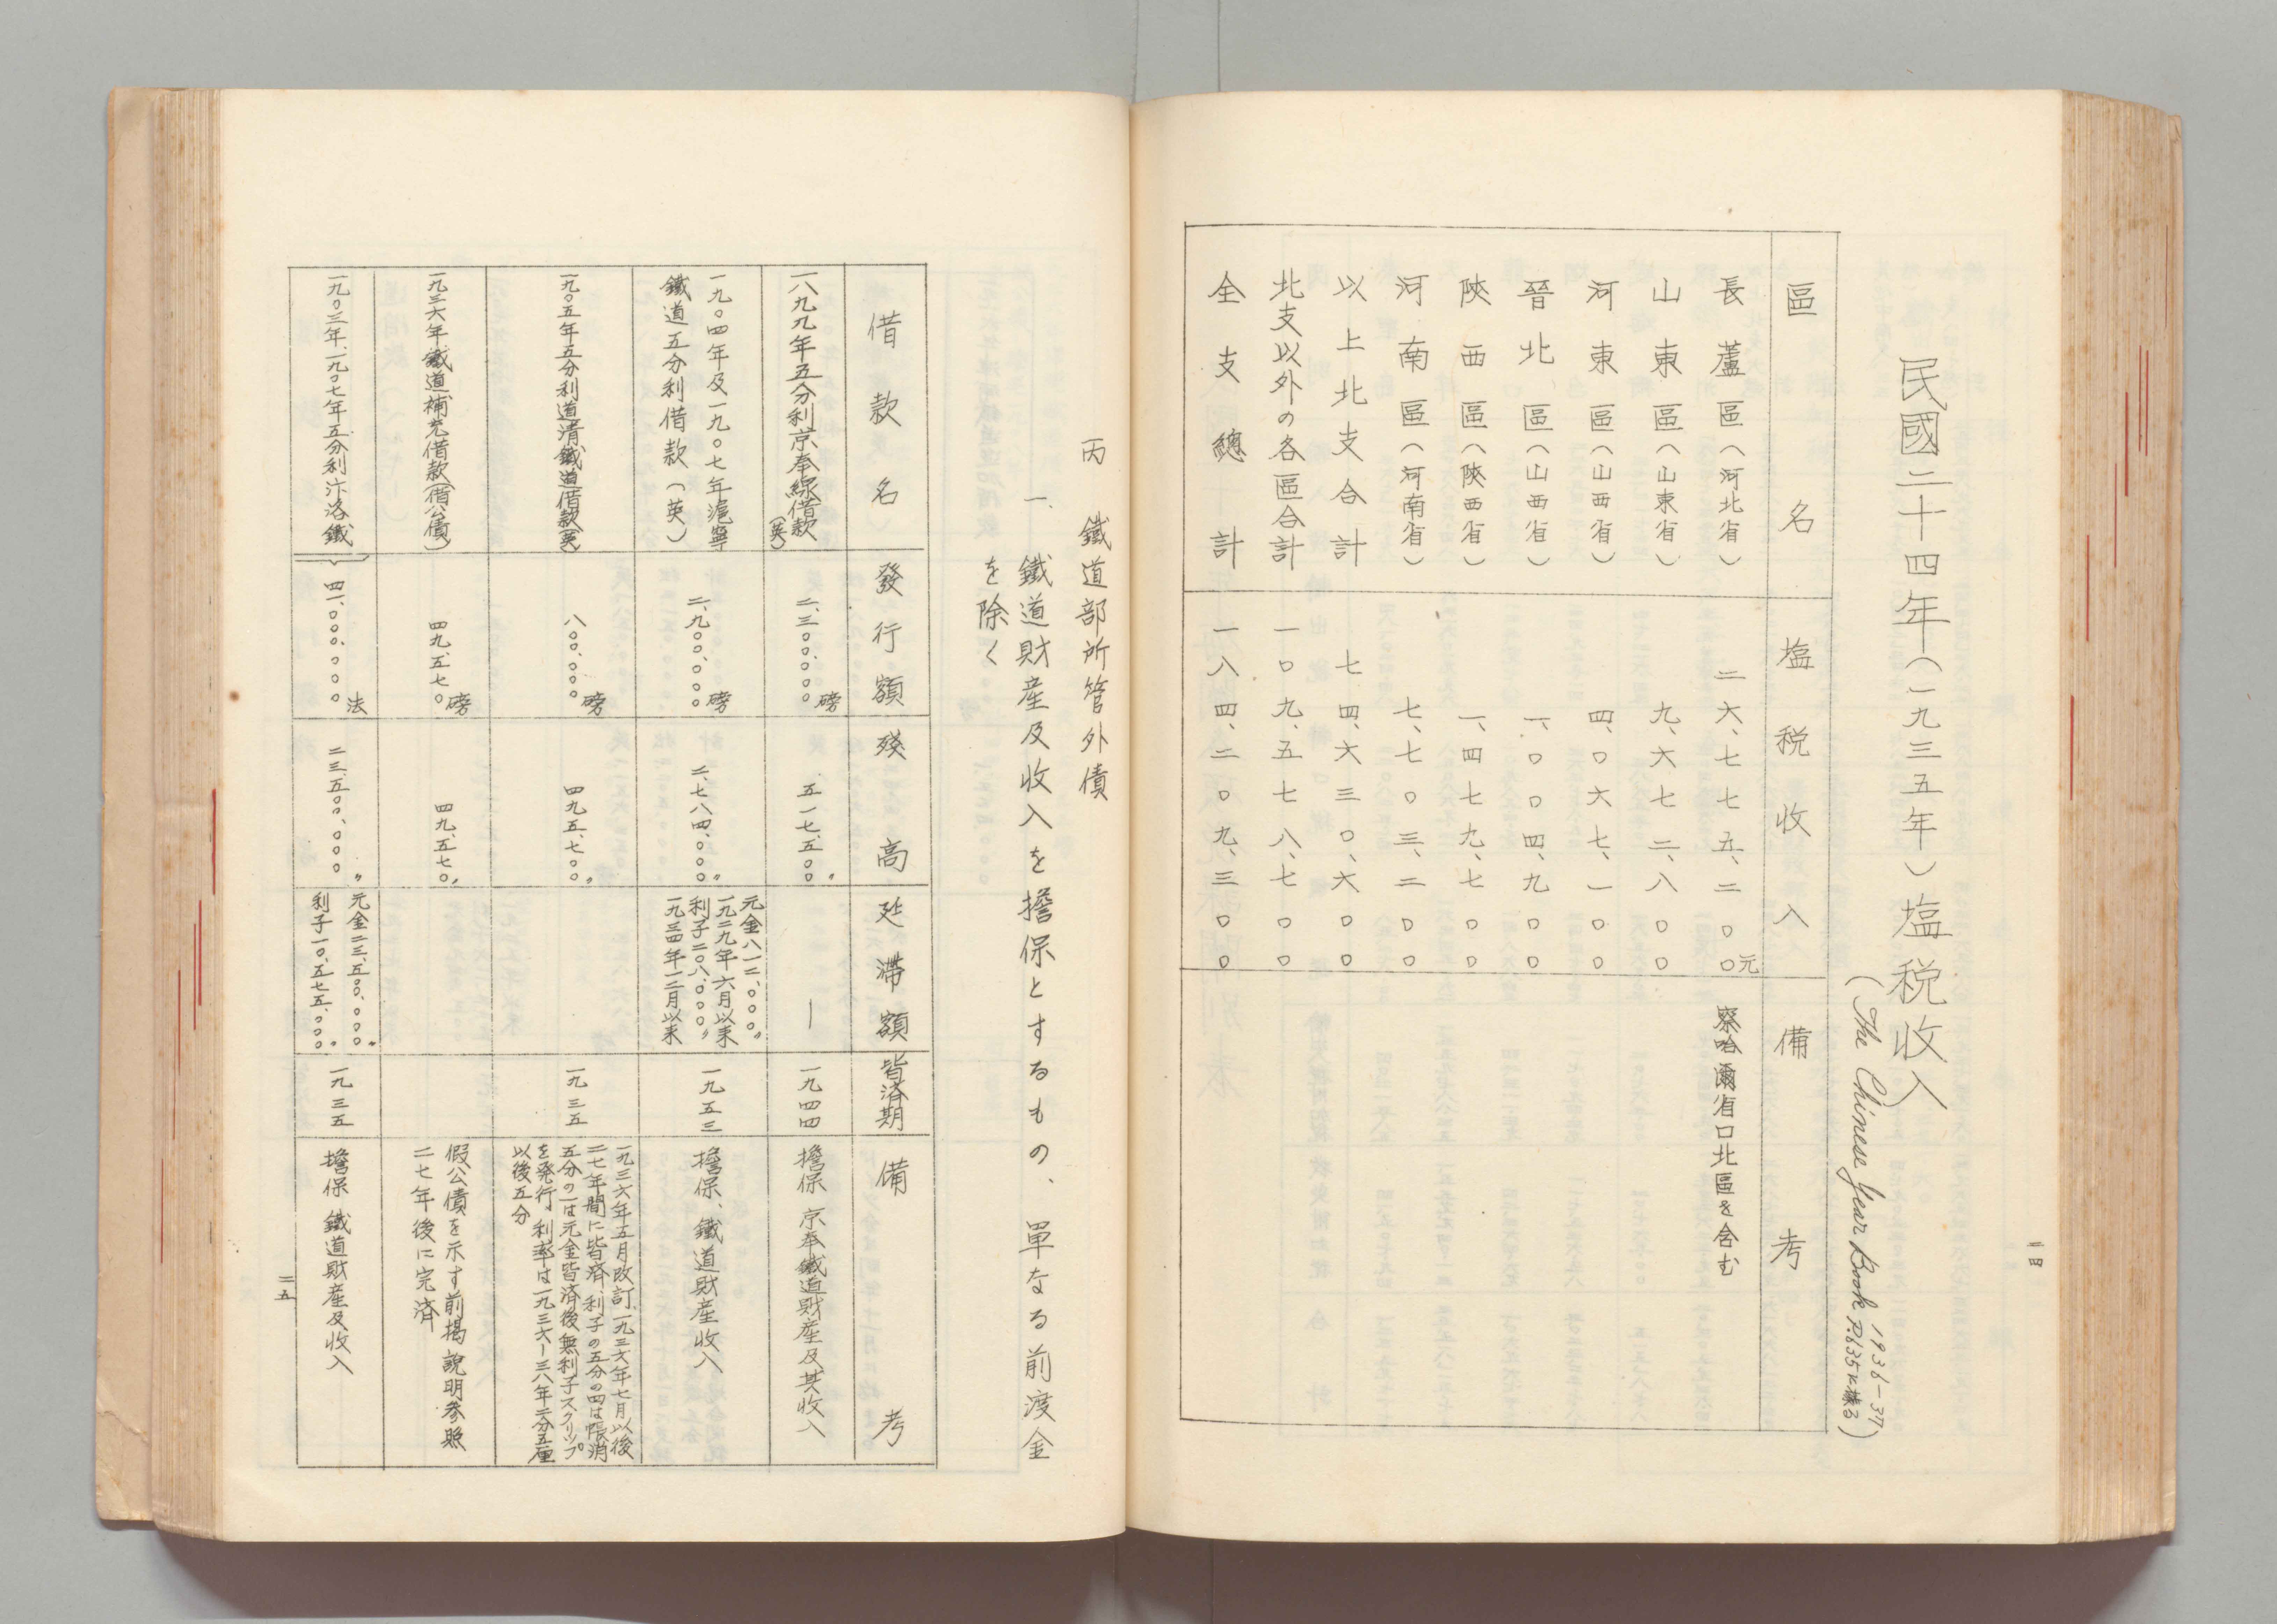 二四
民國二十四年(一九三五年)塩税收入
(The Chinese Year Book 1936-37 P.635に據る)
區名 塩税收入 備考
長蘆區(河北省) 二六、七七五、二〇〇元 察哈爾省口北區を含む
山東區(山東省) 九、六七二、八〇〇
河東區(山西省) 四、〇六七、一〇〇
晉北區(山西省) 一、〇〇四、九〇〇
陝西區(陝西省) 一、四七九、七〇〇
河南區(河南省) 七、七〇三、二〇〇
以上北支合計 七四、六三〇、六〇〇
北支以外の各區合計 一〇九、五七八、七〇〇
全支總計 一八四、二〇九、三〇〇
丙 鐵道部所管外債
一、鐵道財産及收入を擔保とするもの、單なる前渡金
を除く
借款名 發行額 殘高 延滯額 皆済期 備考
一八九九年五分利京奉線借款(英) 二、三〇〇、〇〇〇磅 五一七、五〇〇〃 — 一九四四 擔保 京奉鐵道財産及其收入
一九〇四年及一九〇七年滬寧
鐵道五分利借款(英) 二、九〇〇、〇〇〇磅 二、七八四、〇〇〇〃
元金八一二、〇〇〇〃
一九二九年六月以来
利子二〇八、〇〇〇〃
一九三四年一二月以来
一九五三 擔保、鐵道財産收入
一九〇五年五分利道清鐵道借款(英) 八〇〇、〇〇〇磅 四九五、七〇〇〃 一九三五
一九三六年五月改訂、一九三六年七月以後
二七年間に皆済、利子の五分の四は帳消
五分の一は元金皆済後無利子スクリップ
を発行、利率は一九三六—三八年二分五厘
以後五分
一九三六年鐵道補充借款(借公債) 四九、五七〇磅 四九、五七〇〃
假公債を示す前掲說明參照
二七年後に完済
一九〇三年、一九〇七年五分利汴洛鐵 四一、〇〇〇、〇〇〇法 二三、五〇〇、〇〇〇〃
元金二三、五〇〇、〇〇〇〃
利子一〇、五七五、〇〇〇
一九三五 擔保 鐵道財産及收入
二五